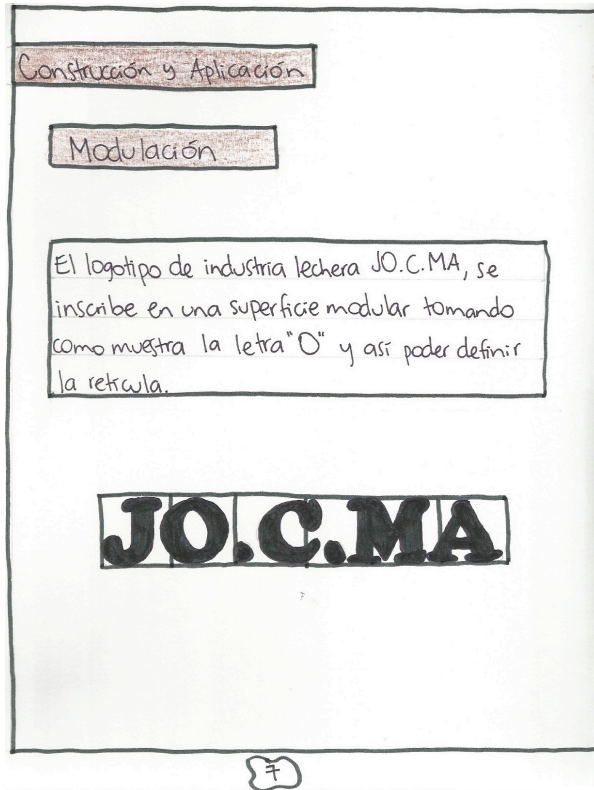 Construcción y Aplicación
Modulación
El logotipo de industria lechera JO.C.MA, se
inscribe en una superficie modular tomando
como muestra la letra "O" y así poder definir
la retícula.
JO.C.MA
7